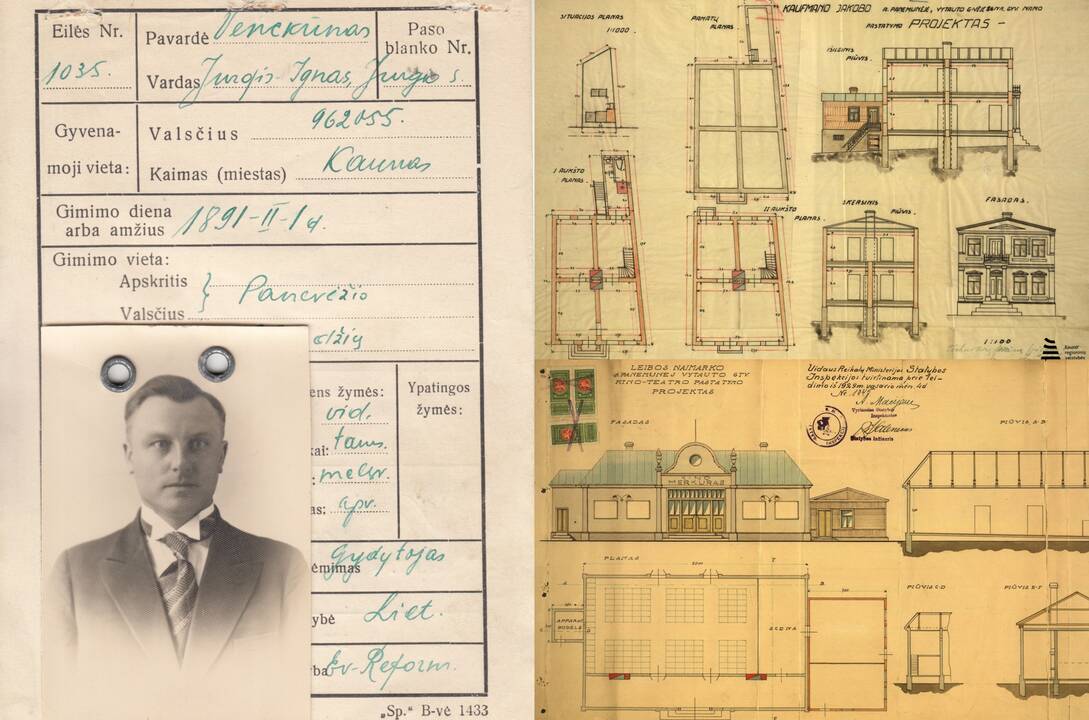 Eilės Nr.
1035.
Pavardė Venckūnas
Vardas Jurgis-Ignas, Jurgio s.
Paso
blanko Nr.
962055.
Gyvena-
moji vieta:
Valsčius
Kaimas (miestas) Kaunas
Gimimo diena
arba amžius 1891-II-1 d.
Gimimo vieta:
Apskritis
Valsčius
Panevėžio
ens žymės:
vid.
kai: tams.
: melyn.
as: apv.
Ypatingos
žymės:
ėmimas Gydytojas
ybė Liet.
ba Ev-Reform.
„Sp." B-vė 1433
KAUFMANO JAKOBO A. PANEMUNĖJE, VYTAUTO G-VĖJE
PASTATYMO PROJEKTAS
SITUACIJOS PLANAS
1:1000.
PAMATŲ
PLANAS.
IŠILGINIS
PIŪVIS.
I AUKŠTO
PLANAS.
II AUKŠTO
PLANAS.
SKERSINIS PIŪVIS.
FASADAS.
1:100
Kauno
regioninis
valstybės
LEIBOS NAIMARKO
A. PANEMUNĖJ VYTAUTO GTV
KINO-TEATRO PASTATYMO
PROJEKTAS
Vidaus Reikalų Ministerijos Statybos
Inspekcijos tvirtinama prie lei-
dimo iš 1929 m. vasario mėn. 4 d
Nr.
Vyriausias Statybos
Inspektorius
Statybos Inžinierius
FASADAS
PIŪVIS A-B
KINO
MERKURAS
PLANAS
APPARAT
BUDELĖ
SCENA
PIŪVIS C-D
PIŪVIS E-F